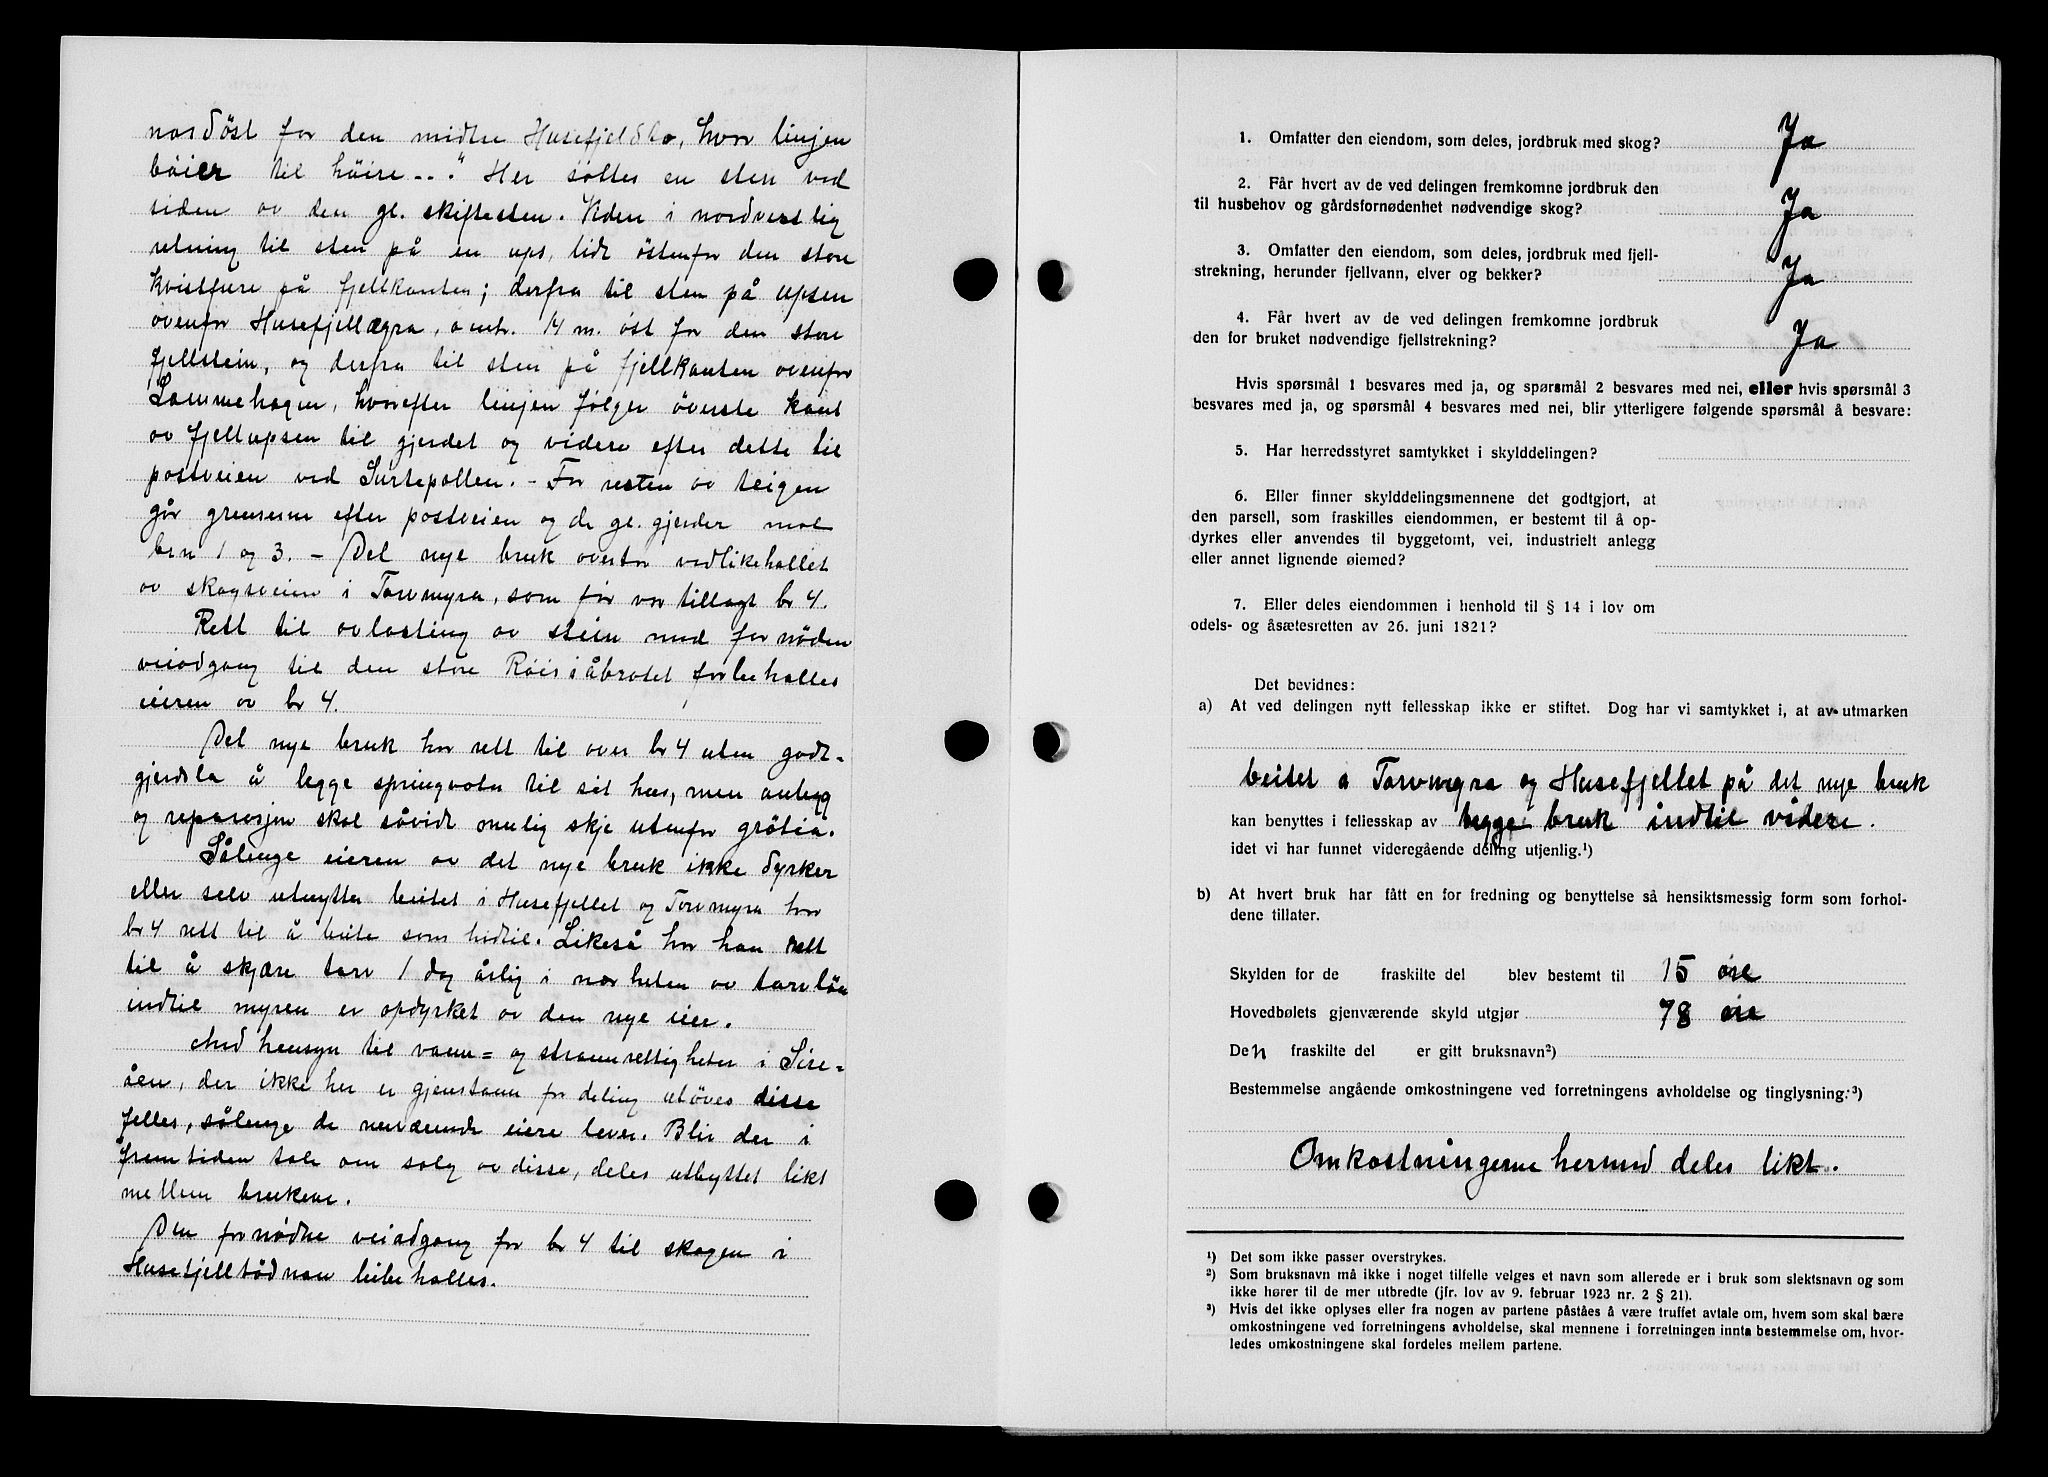 nordöst for den midtre Husefjeldklo, hvor linjen
böier til höire -.." Her sattes en sten ved
siden av den gl. skiftesten. Videre i nordvestlig
retning til sten på en ups, lidt östenfor den store
kvistfure på fjellkanten; derfra til sten på upsen
ovenfor Husefjellægra, omtr. 14 m. øst for den store
fjellstein, og derfra til sten på fjellkanten ovenfor
Lammehagen, hvorefter linjen følger överste kant
av fjellupsen til gjerdet og videre efter dette til
postveien ved Surtepollen. - For resten av teigen
går grensene efter postveien og de gl. gjerder mot
brn 1 og 3. - Det nye bruk overtar vedlikehallet
av skogsveien i Torvmyra, som før var tillagt br 4.
Rett til avlasting av stein med fornöden
veiadgang til den store Röisiåbrotet forbeholles
eieren av br 4.
Det nye bruk har rett til over br 4 uten godt-
gjerdsla å legge springvatn til sit hus, men anlegg
og reparasjon skal såvidt mulig skje utenfor grötia.
Sålenge eieren av det nye bruk ikke dyrker
eller selv utnytter beitet i Husefjellet og Torvmyra har
br 4 rett til å beite som hidtil. Likeså har han rett
til å skjære torv 1 dag årlig i nærheten av torvlöa
indtil myren er opdyrket av den nye eier.
Med hensyn til vann= og strømrettigheter i Sire-
åen, der ikke her er gjenstann for deling utöves disse
felles, sålenge de nuværende eiere lever. Blir der i
fremtiden tale om salg av disse, deles utbyttet likt
mellem brukene.
Den fornödne veiadgang for br 4 til skogen i
Husefjelltödnan beibeholles.
1. Omfatter den eiendom, som deles, jordbruk med skog? Ja
2. Får hvert av de ved delingen fremkomne jordbruk den
til husbehov og gårdsfornødenhet nødvendige skog? Ja
3. Omfatter den eiendom, som deles, jordbruk med fjell-
strekning, herunder fjellvann, elver og bekker? Ja
4. Får hvert av de ved delingen fremkomne jordbruk
den for bruket nødvendige fjellstrekning? Ja
Hvis spørsmål 1 besvares med ja, og spørsmål 2 besvares med nei, eller hvis spørsmål 3
besvares med ja, og spørsmål 4 besvares med nei, blir ytterligere følgende spørsmål å besvare:
5. Har herredsstyret samtykket i skylddelingen?
6. Eller finner skylddelingsmennene det godtgjort, at
den parsell, som fraskilles eiendommen, er bestemt til å op-
dyrkes eller anvendes til byggetomt, vei, industrielt anlegg
eller annet lignende øiemed?
7. Eller deles eiendommen i henhold til § 14 i lov om
odels- og åsætesretten av 26. juni 1821?
Det bevidnes:
a) At ved delingen nytt fellesskap ikke er stiftet. Dog har vi samtykket i, at av utmarken
beitet i Torvmyra og Husefjellet på det nye bruk
kan benyttes i fellesskap av begge bruk indtil videre.
idet vi har funnet videregående deling utjenlig.¹)
b) At hvert bruk har fått en for fredning og benyttelse så hensiktsmessig form som forhol-
dene tillater.
Skylden for de fraskilte del blev bestemt til 15 øre
Hovedbølets gjenværende skyld utgjør 78 øre
Den fraskilte del er gitt bruksnavn²)
Bestemmelse angående omkostningene ved forretningens avholdelse og tinglysning:³)
Omkostningerne hermed deles likt.
¹) Det som ikke passer overstrykes.
²) Som bruksnavn må ikke i noget tilfelle velges et navn som allerede er i bruk som slektsnavn og som
ikke hører til de mer utbredte (jfr. lov av 9. februar 1923 nr. 2 § 21).
³) Hvis det ikke oplyses eller fra nogen av partene påståes å være truffet avtale om, hvem som skal bære
omkostningene ved forretningens avholdelse, skal mennene i forretningen innta bestemmelse om, hvor-
ledes omkostningene skal fordeles mellem partene.